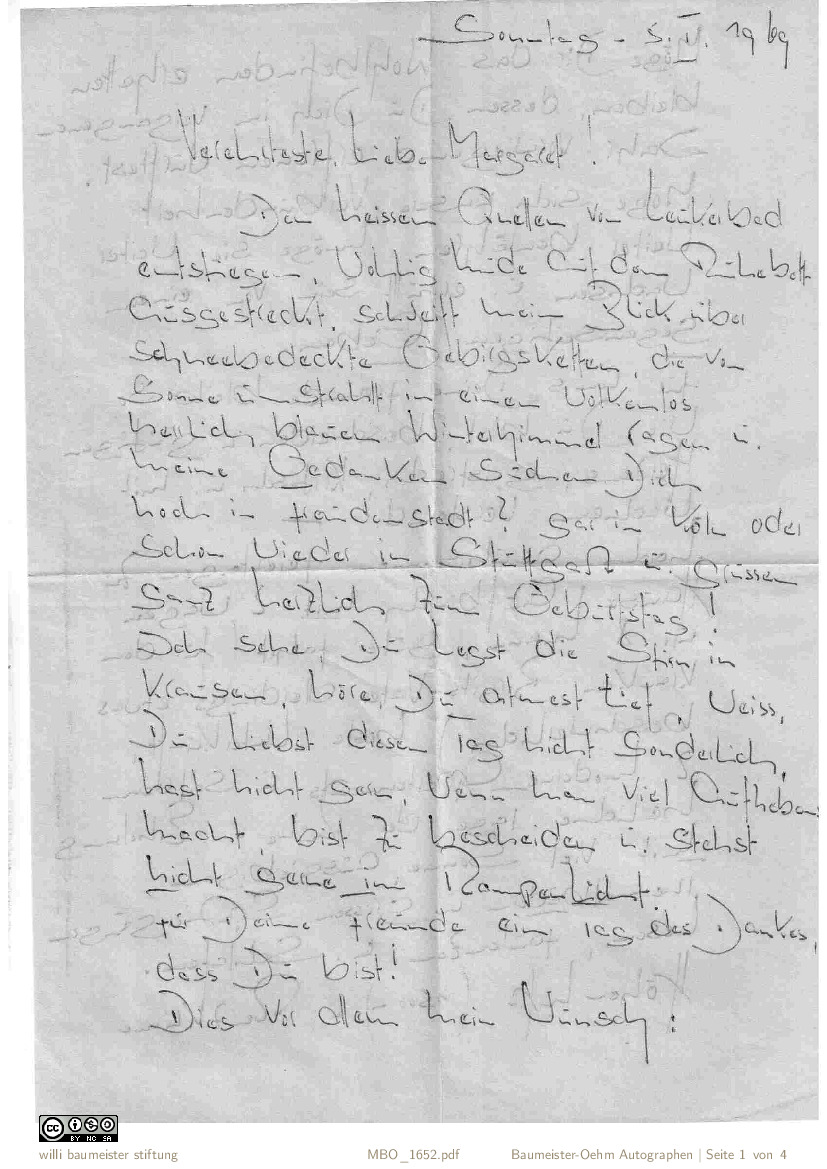 Sonntag - 5. I. 1969
Verehrteste, liebe Margaret!
Den heissen Quellen von Leukerbad
entstiegen, wohlig müde auf dem Ruhebett
ausgestreckt, schweift mein Blick über
schneebedeckte Gebirgsketten, die von
Sonne umstrahlt in einen wolkenlos
herrlich blauen Winterhimmel ragen u.
meine Gedanken suchen Dich
hoch in Freudenstadt? gar in Köln oder
schon wieder in Stuttgart u. grüssen
ganz herzlich zum Geburtstag!
Ich sehe, Du legst die Stirn in
Krausen, höre, Du atmest tief, weiss,
Du liebst diesen Tag nicht sonderlich,
hast nicht gern, wenn man viel Aufheben
macht, bist zu bescheiden u. stehst
nicht gerne im Rampenlicht.
Für Deine Freunde ein Tag des Dankes,
dass Du bist!
Dies vor allem mein Wunsch:
BY NC SA
willi baumeister stiftung MBO_1652.pdf Baumeister-Oehm Autographen | Seite 1 von 4